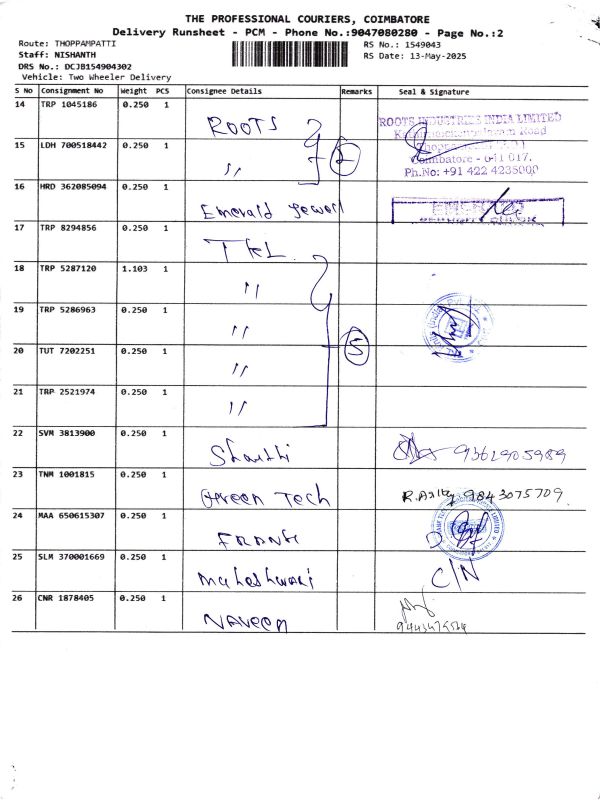 THE PROFESSIONAL COURIERS, COIMBATORE
Delivery Runsheet - PCM - Phone No.:9047080280 - Page No.:2
Route: THOPPAMPATTI
RS No.: 1549043
Staff: NISHANTH
RS Date: 13-May-2025
DRS No.: DCJB154904302
Vehicle: Two Wheeler Delivery
S No Consignment No Weight PCS Consignee Details Remarks Seal & Signature
14 TRP 1045186 0.250 1 ROOTS
ROOTS INDUSTRIES INDIA LIMITED
Road
15 LDH 700518442 0.250 1 〃 2
Coimbatore - 641 017.
Ph.No: +91 422 4235000
16 HRD 362085094 0.250 1 Emerald Jewell
17 TRP 8294856 0.250 1
18 TRP 5287120 1.103 1 〃
19 TRP 5286963 0.250 1 〃
20 TUT 7202251 0.250 1 〃 5
21 TRP 2521974 0.250 1 〃
22 SVM 3813900 0.250 1 9362905989
23 TNM 1001815 0.250 1 Green Tech 9843075709
24 MAA 650615307 0.250 1
25 SLM 370001669 0.250 1 Maheshwari C/N
26 CNR 1878405 0.250 1 NAVEEN